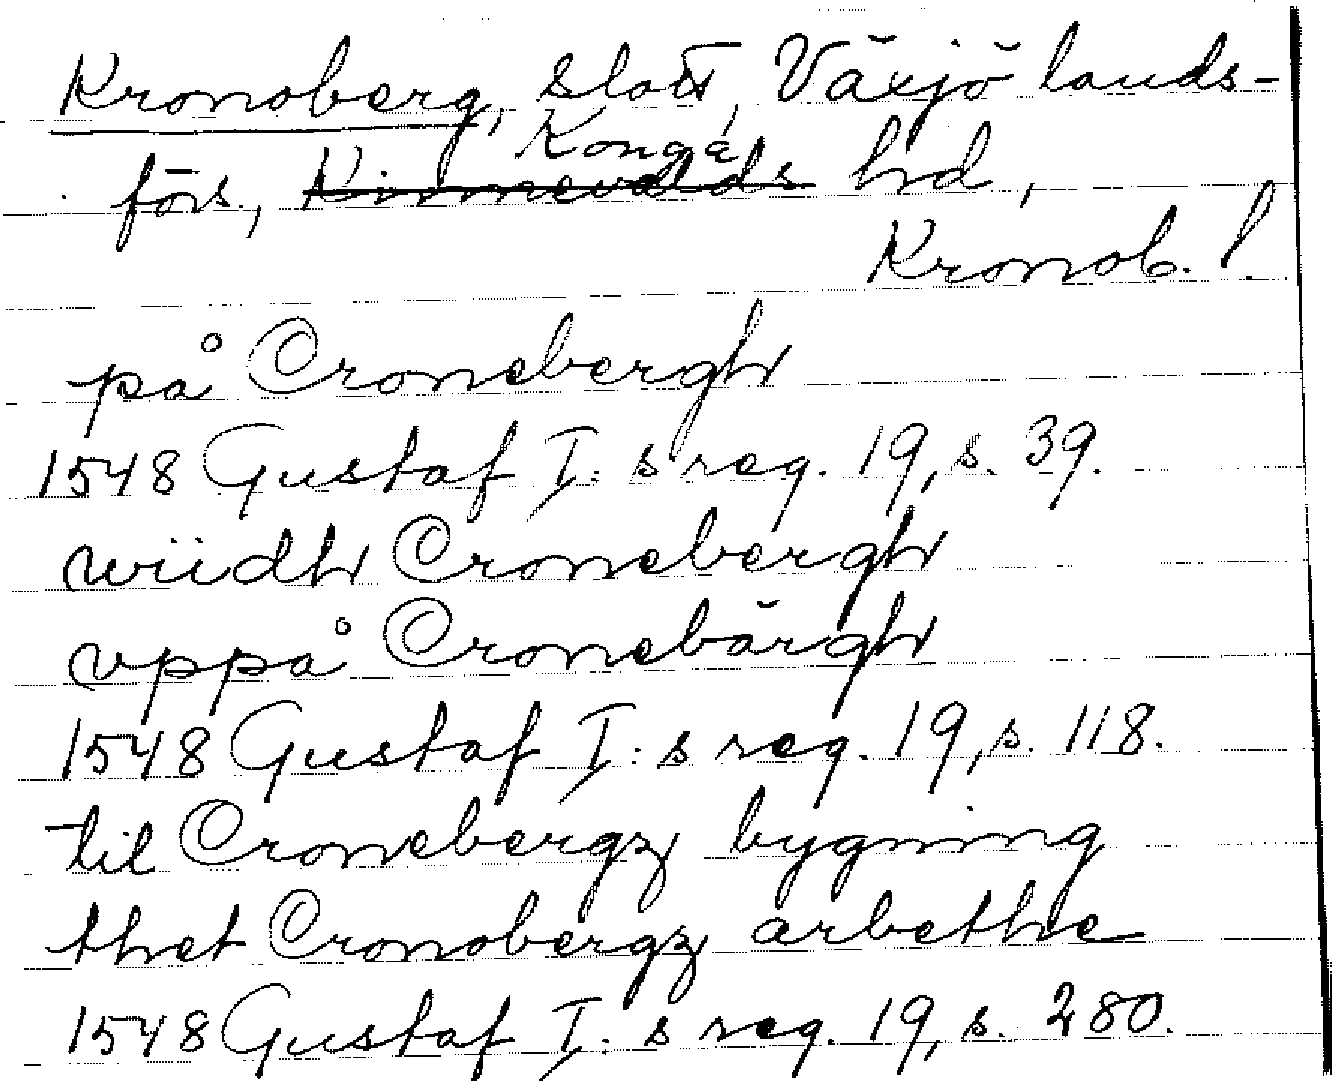 Kronoberg, slott, Växjö lands-
förs., Konga hd,
Kronob. l.
på Cronebergh
1548 Gustaf I:s reg. 19, s. 39.
wiidh Cronebergh
vppå Cronebärgh
1548 Gustaf I:s reg. 19, s. 118.
til Cronebergz bygning
thet Cronobergz arbethe
1548 Gustaf I:s reg. 19, s. 280.